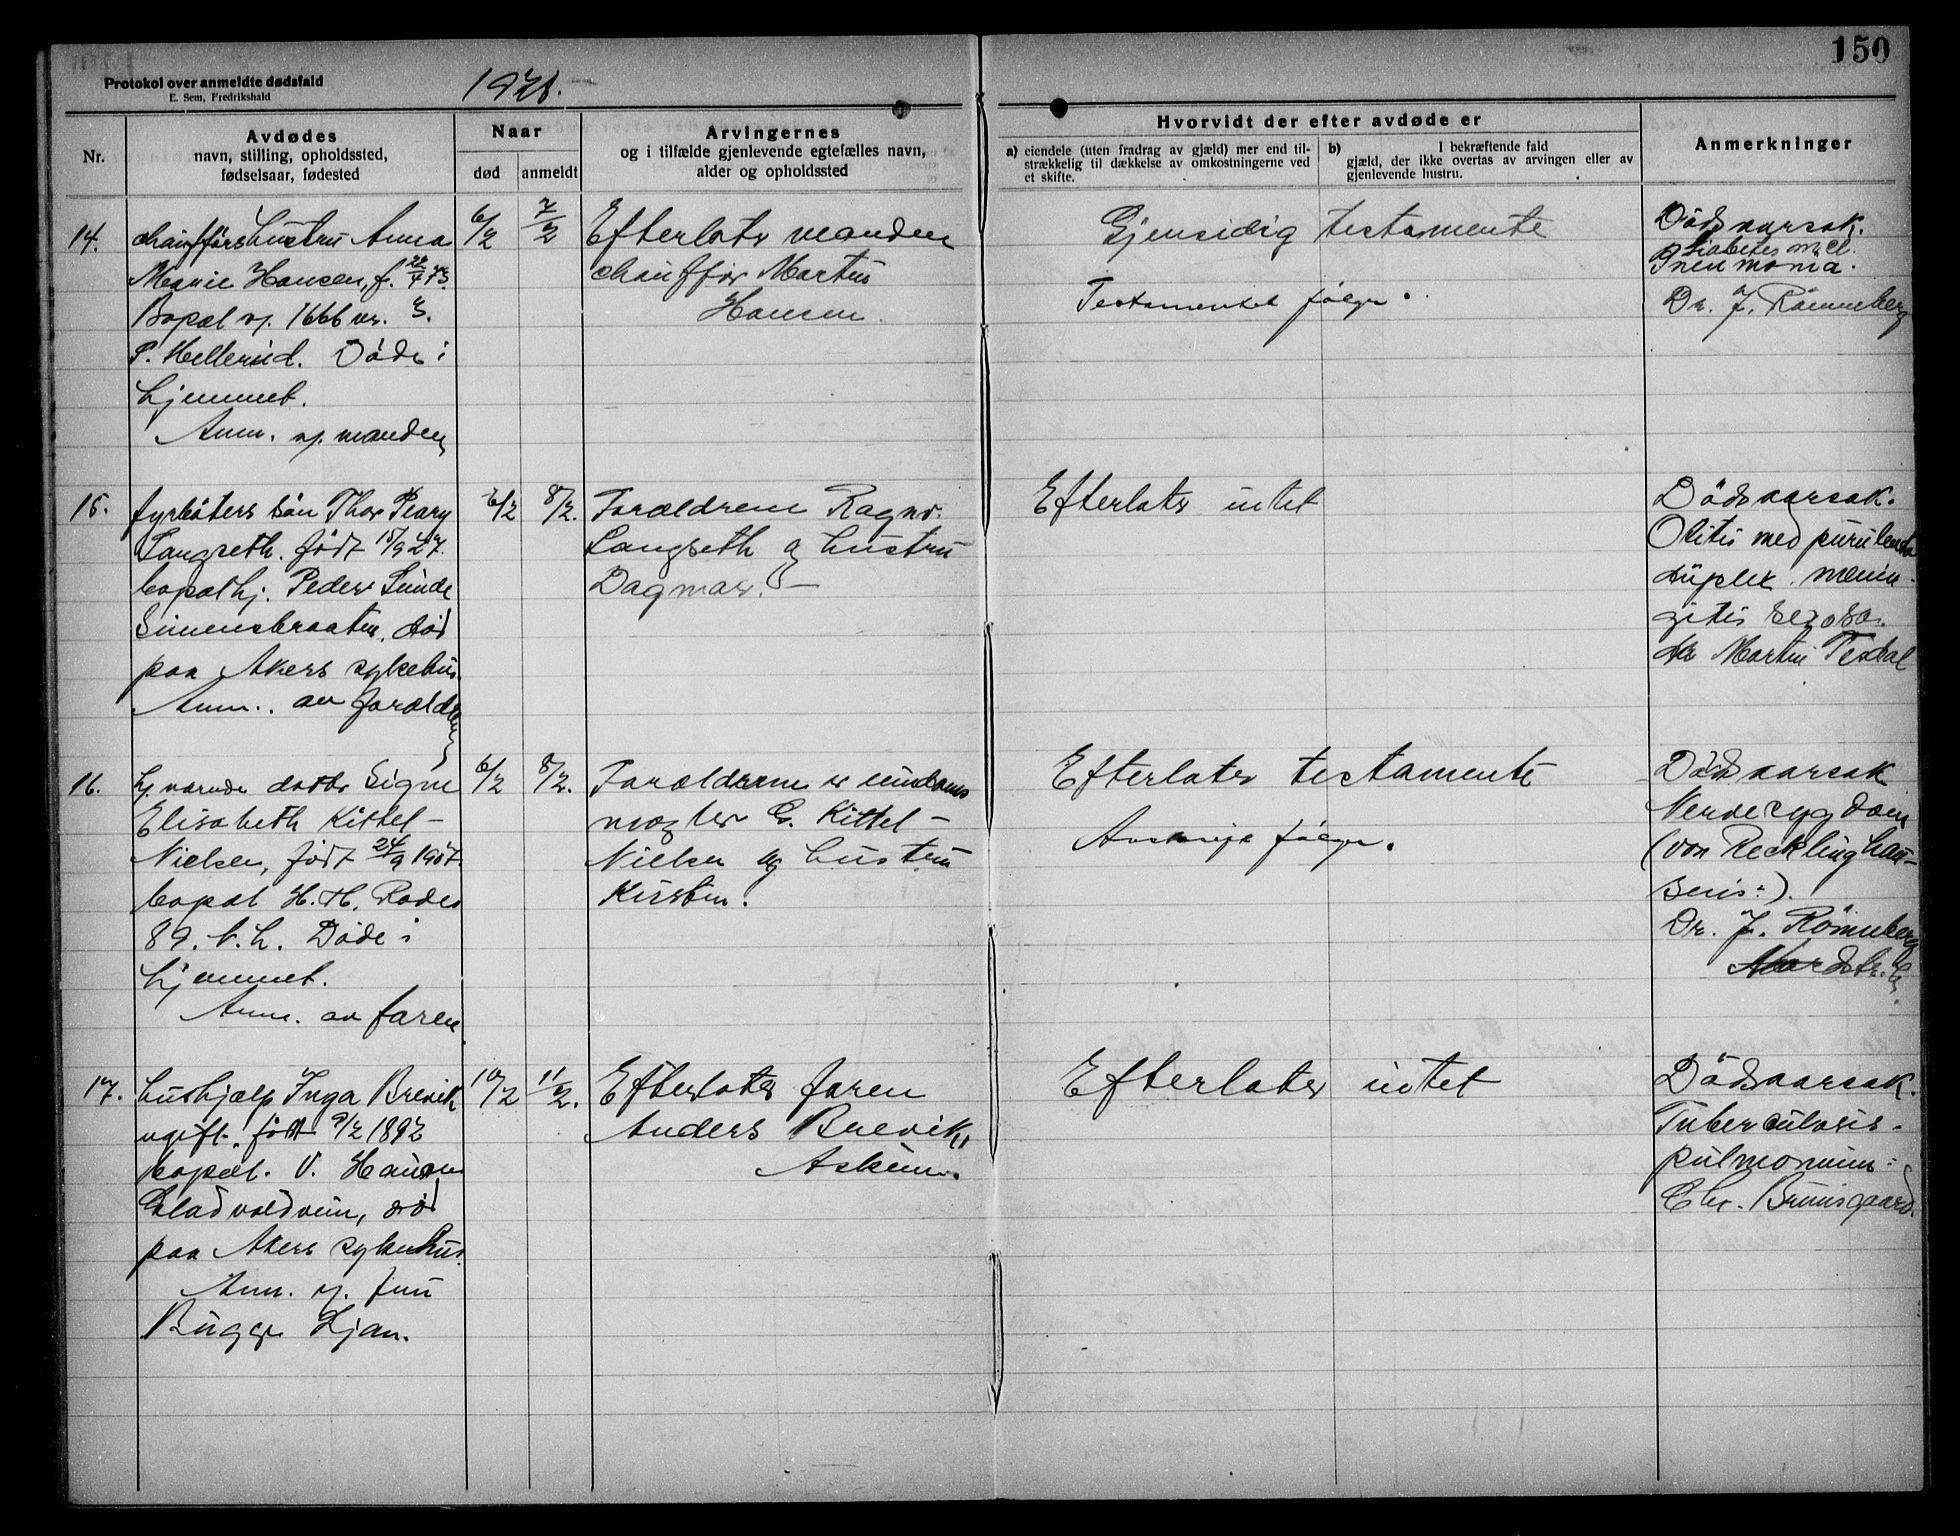 150
Protokol over anmeldte dødsfald
E. Sem, Fredrikshald
1928.
Nr.
Avdødes
navn, stilling, opholdssted,
fødselsaar, fødested
Naar
død
anmeldt
Arvingernes
og i tilfælde gjenlevende egtefælles navn,
alder og opholdssted
Hvorvidt der efter avdøde er
a) eiendele (uten fradrag av gjæld) mer end til-
strækkelig til dækkelse av omkostningerne ved
et skifte.
b) I bekræftende fald
gjæld, der ikke overtas av arvingen eller av
gjenlevende hustru.
Anmerkninger
14.
chaufførshustru Anna
Marie Hansen, f. 22/4 73.
Bopæl 1666 nr. 3.
P. Hellerud. Døde i
hjemmet.
Anm. av manden
6/2
7/2
Efterlater manden
chauffør Martus
Hansen.
Gjensidig testamente
Testamentet følger.
Dødsaarsak.
Diabetes mel.
Pneumonia.
Dr. J. Rønneberg
15.
fyrbøters søn Thor Peary
Langseth. født 15/9 27.
bopæl hj. Peder Sunde
Simensbraaten, død
paa Akers sykehus.
Anm. av forældrene
6/2
8/2.
Forældrene Ragnv.
Langseth og hustru
Dagmar. —
Efterlater intet
Dødsaarsak.
Otitis med purulenta
duplex. menin-
gitis serosa.
dr Martin Tesdal
16.
hj. værende datter Signe
Elisabeth Kittel-
Nielsen, født 24/9 1907
bopæl H. H. Rodes
89. b. h. Døde i
hjemmet.
Anm. av faren
6/2
8/2.
Forældrene er
G. Kittel-
Nielsen og hustru
Kirsten.
Efterlater testamente
Avskrift følger.
Dødsaarsak
Nervesygdom
(von Recklinghau-
sens:).
Dr. J. Rønneberg
Nordstr. h.
17.
hushjælp Inga Brevik
ugift. født 9/2 1892
bopæl. V. Hansen
Gladvoldveien, død
paa Akers sykehus.
Anm. av fru
Bugge Ljan.
10/2
11/2.
Efterlater faren
Anders Brevik,
Askim.
Efterlater intet
Dødsaarsak.
Tuberculosis.
pulmonum:
Chr. Bruusgaard.